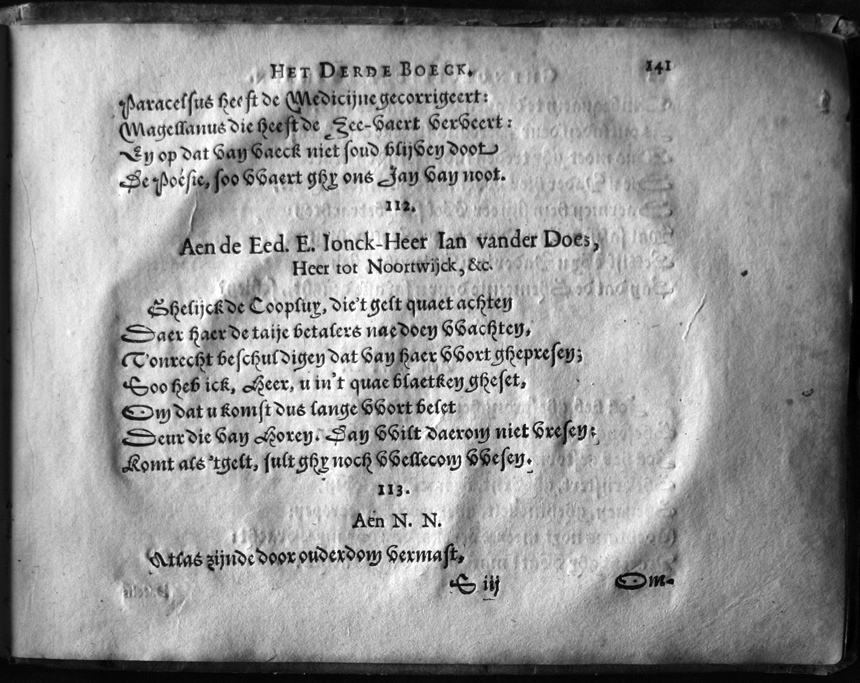 HET DERDE BOECK. 141
Paracelsus heeft de Medicijne gecorrigeert:
Magellanus die heeft de Zee-vaert verveert:
En op dat van vaeck niet soud blijven doot
De Poësie, soo VVaert ghy ons Jan van noot.
112.
Aen de Eed. E. Ionck-Heer Ian vander Does,
Heer tot Noortwijck, &c.
Ghelijck de Coopluy, die't gelt quaet achten
Daer haer de taije betalers nae doen VVachten,
T'onrecht beschuldigen dat van haer VVort ghepresen;
Soo heb ick, Heer, u in't quae blaetken gheset,
Om dat u komst dus lange VVort belet
Deur die van Horen. Dan VVilt daerom niet vresen:
Komt als 'tgelt, sult ghy noch VVellecom VVesen.
113.
Aen N. N.
Atlas zijnde door ouderdom vermast,
S iij Om-